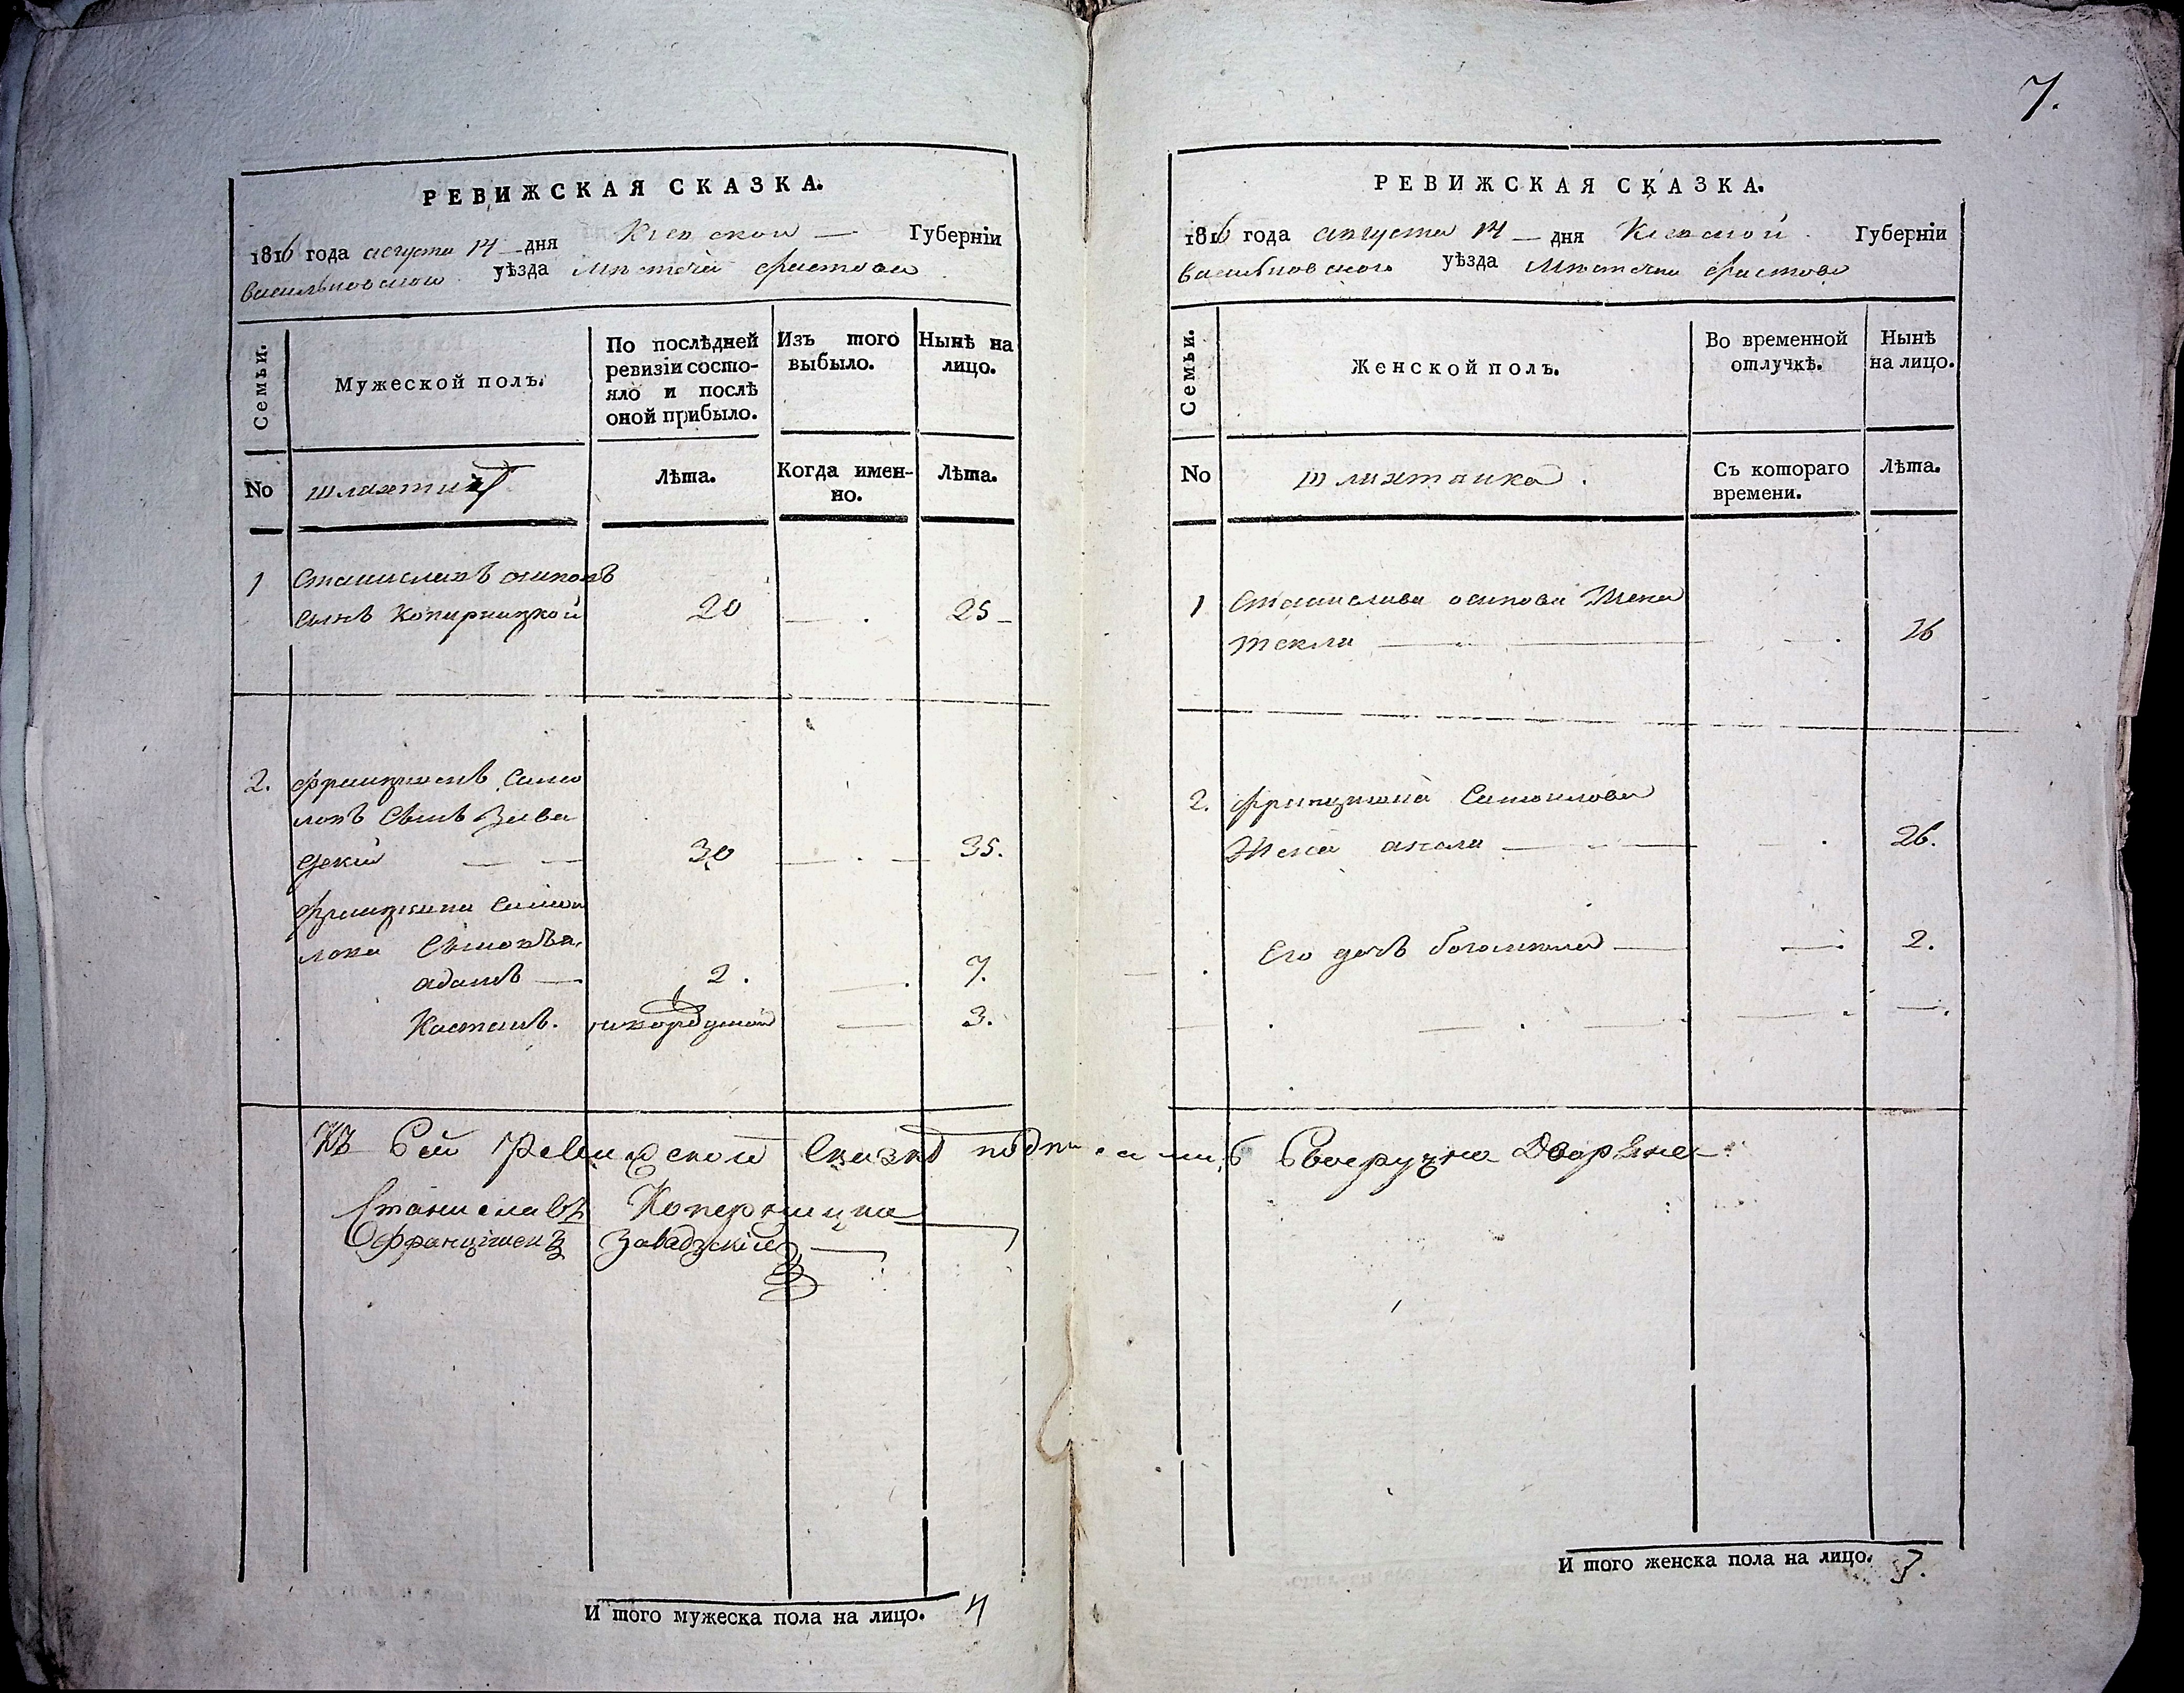 7.
РЕВИЖСКАЯ СКАЗКА.
1816 года августа 14 дня Киевской Губерніи
васильковской уѣзда мѣстечка фастова
Семьи.
Мужеской полъ.
По послѣдней
ревизіи состо-
яло и послѣ
оной прибыло.
Изъ того
выбыло.
Нынѣ на
лицо.
No
шляхтичъ
Лѣта.
Когда имен-
но.
Лѣта.
1 Станиславъ осиповъ
сынъ Копирницкой 20 25
2. францишекъ Само
ловъ Сынъ Зава
дскій 30 35.
францишка Самои
лова Сыновья,
адамъ 2. 7.
Каетанъ. 3.
Къ Сей Ревижской Сказкѣ подписались Своеручно Дворяне
Станиславъ Коперницки
Францишекъ Завадзскій
И того мужеска пола на лицо. 4
РЕВИЖСКАЯ СКАЗКА.
1816 года августа 14 дня Киевской Губерніи
васильковского уѣзда мѣстечка фастова
Семьи.
Женской полъ.
Во временной
отлучкѣ.
Нынѣ
на лицо.
No
шляхтянка.
Съ котораго
времени.
Лѣта.
1 Станислава осипова Жена
текля 26
2. францишка Самоилова
Жена 26.
Его дочь 2.
И того женска пола на лицо. 3.